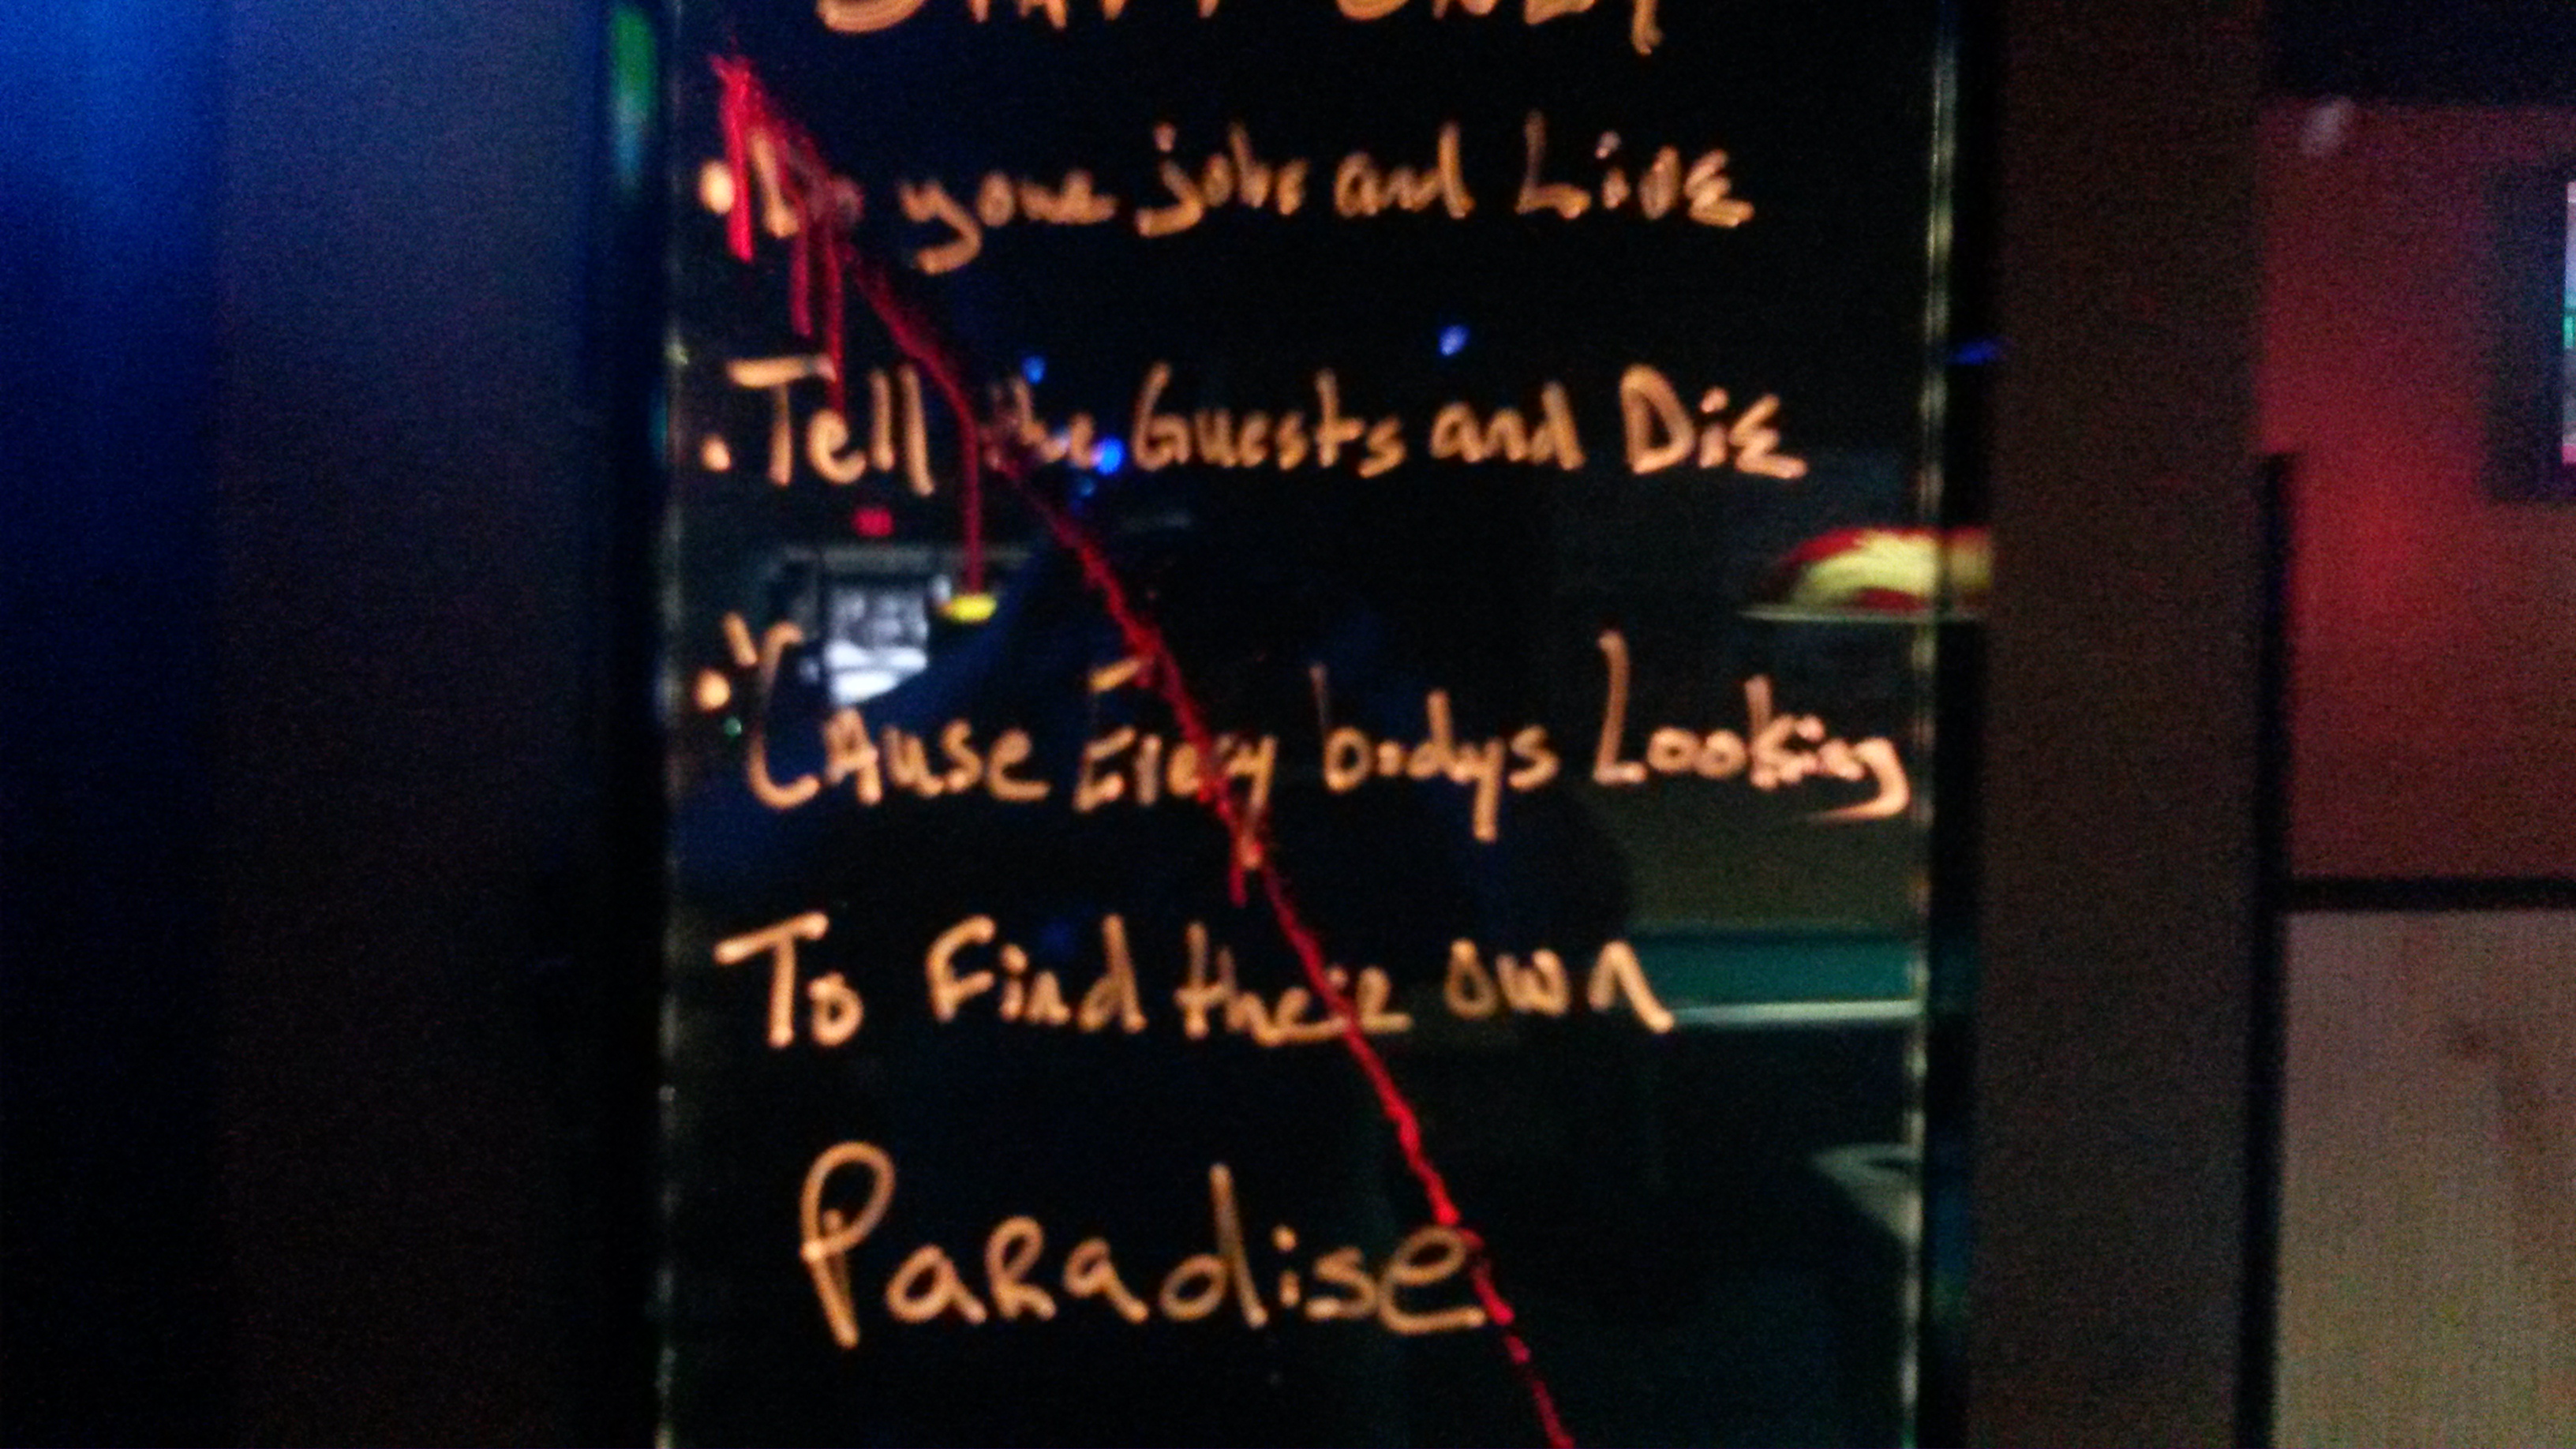 STAFF ONLY
• Do your jobs and LivE
• Tell the Guests and DiE
• 'CAuse Every bodys Looking
To Find their own
PaRadise